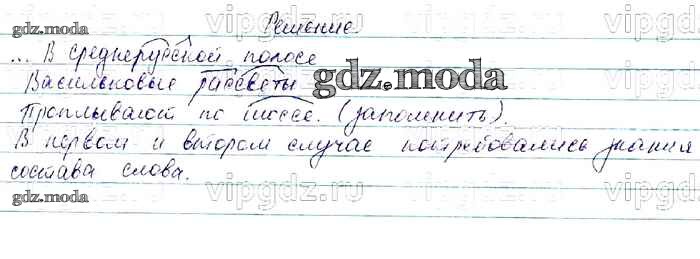 Решение.
gdz.moda
... В среднерусской полосе
Васильковые рассветы
gdz.moda
Проплывают по шоссе. (запомнить).
В первом и втором случае потребовались знания
состава слова.
gdz.moda
vipgdz.ru vipgdz.ru vipgdz.ru